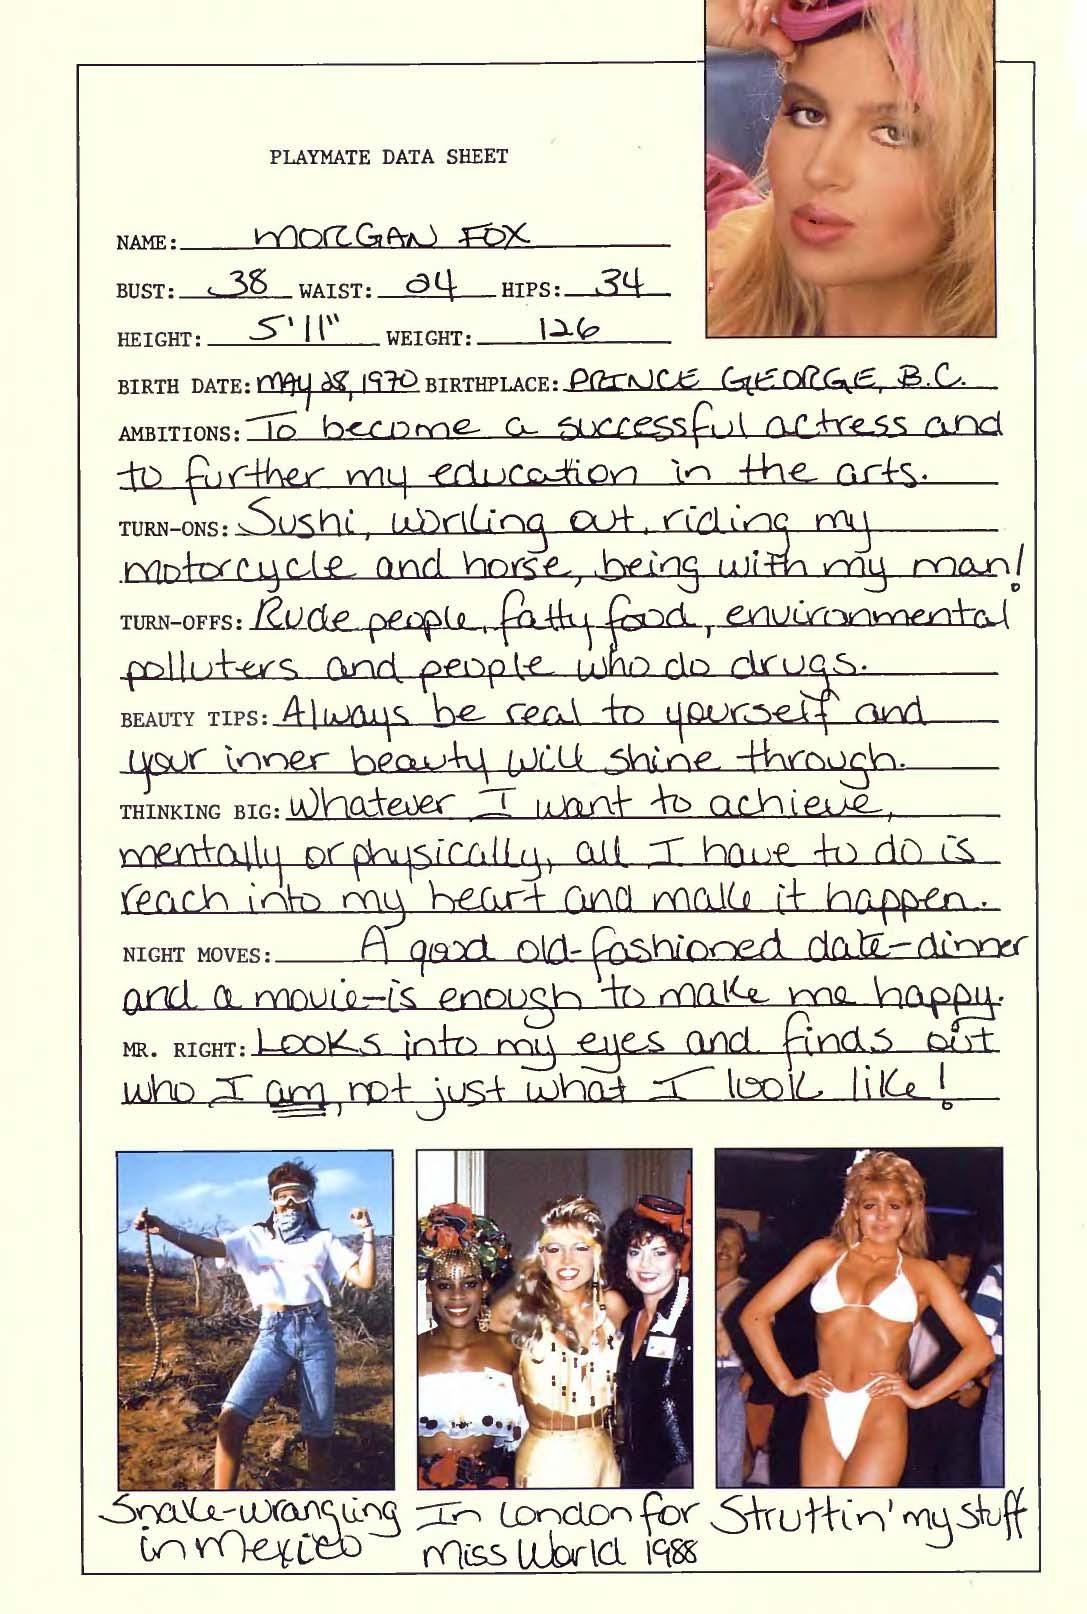 PLAYMATE DATA SHEET
NAME: MORGAN FOX
BUST: 38 WAIST: 24 HIPS: 34
HEIGHT: 5'11" WEIGHT: 126
BIRTH DATE: MAY 28, 1970 BIRTHPLACE: PRINCE GEORGE, B.C.
AMBITIONS: To become a successful actress and
to further my education in the arts.
TURN-ONS: Sushi, working out, riding my
motorcycle and horse, being with my man!
TURN-OFFS: Rude people, fatty food, environmental
polluters and people who do drugs.
BEAUTY TIPS: Always be real to yourself and
your inner beauty will shine through.
THINKING BIG: Whatever I want to achieve,
mentally or physically, all I have to do is
reach into my heart and make it happen.
NIGHT MOVES: A good old-fashioned date-dinner
and a movie-is enough to make me happy.
MR. RIGHT: Looks into my eyes and finds out
who I am, not just what I look like!
Snake-wrangling
in Mexico
In London for
Miss World 1988
Struttin' my stuff